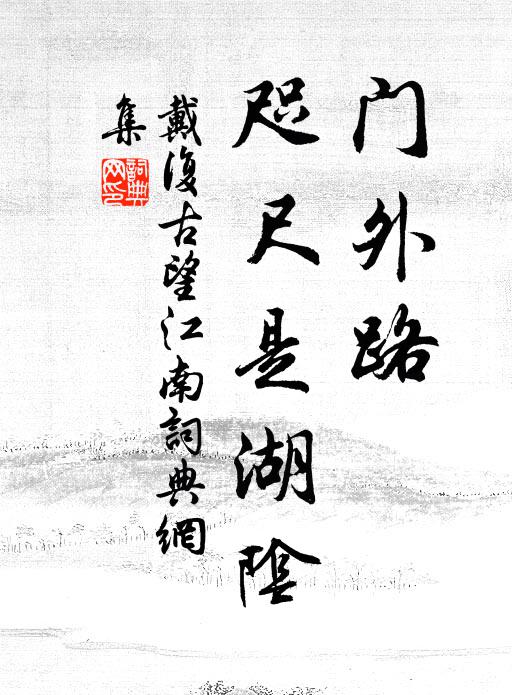 门外路
咫尺是湖陰
戴復古望江南詞典網
集
詞典
网印